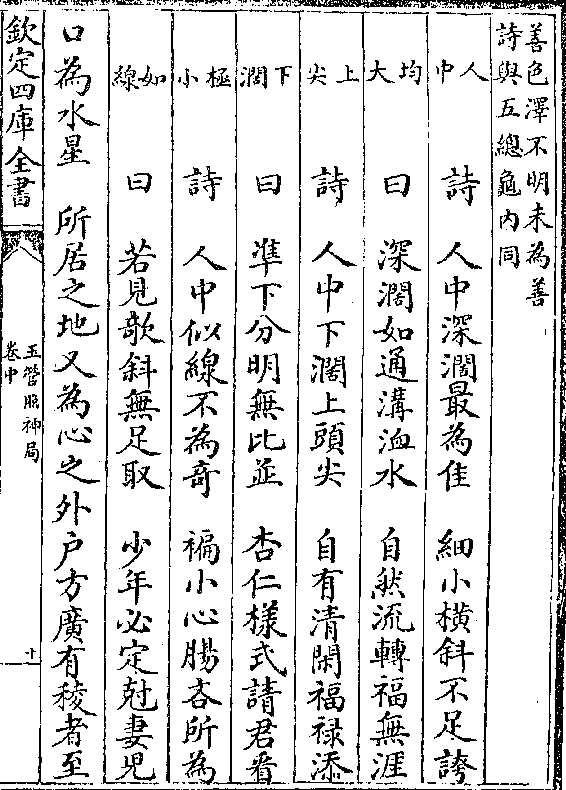 善色澤不明未為善
詩與五總龜內同
人中 詩 人中深濶最為佳 細小橫斜不足誇
均大 曰 深濶如通溝洫水 自然流轉福無涯
上尖 詩 人中下濶上頭尖 自有清閑福禄添
下濶 曰 凖下分明無比並 杏仁樣式請君看
極小 詩 人中似線不為奇 褊小心腸吝所為
如線 曰 若見欹斜無足取 少年必定尅妻児
口為水星 所居之地又為心之外户方廣有稜者至
欽定四庫全書
玉管照神局
卷中